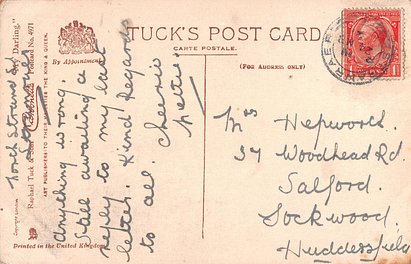 TUCK'S POST CARD
CARTE POSTALE.
By Appointment
(FOR ADDRESS ONLY)
Mrs Hepworth
34 Woodhead Rd.
Salford.
Lockwood.
Huddersfield
Anything is wrong.
Still awaiting a
reply to my last
letter. Kind Regards
to all. Cheerio
Nettie
Darling."
Postcard No. 4971
Raphael Tuck & Sons
ART PUBLISHERS TO THEIR MAJESTIES THE KING & QUEEN.
Copyright
Printed in the United Kingdom